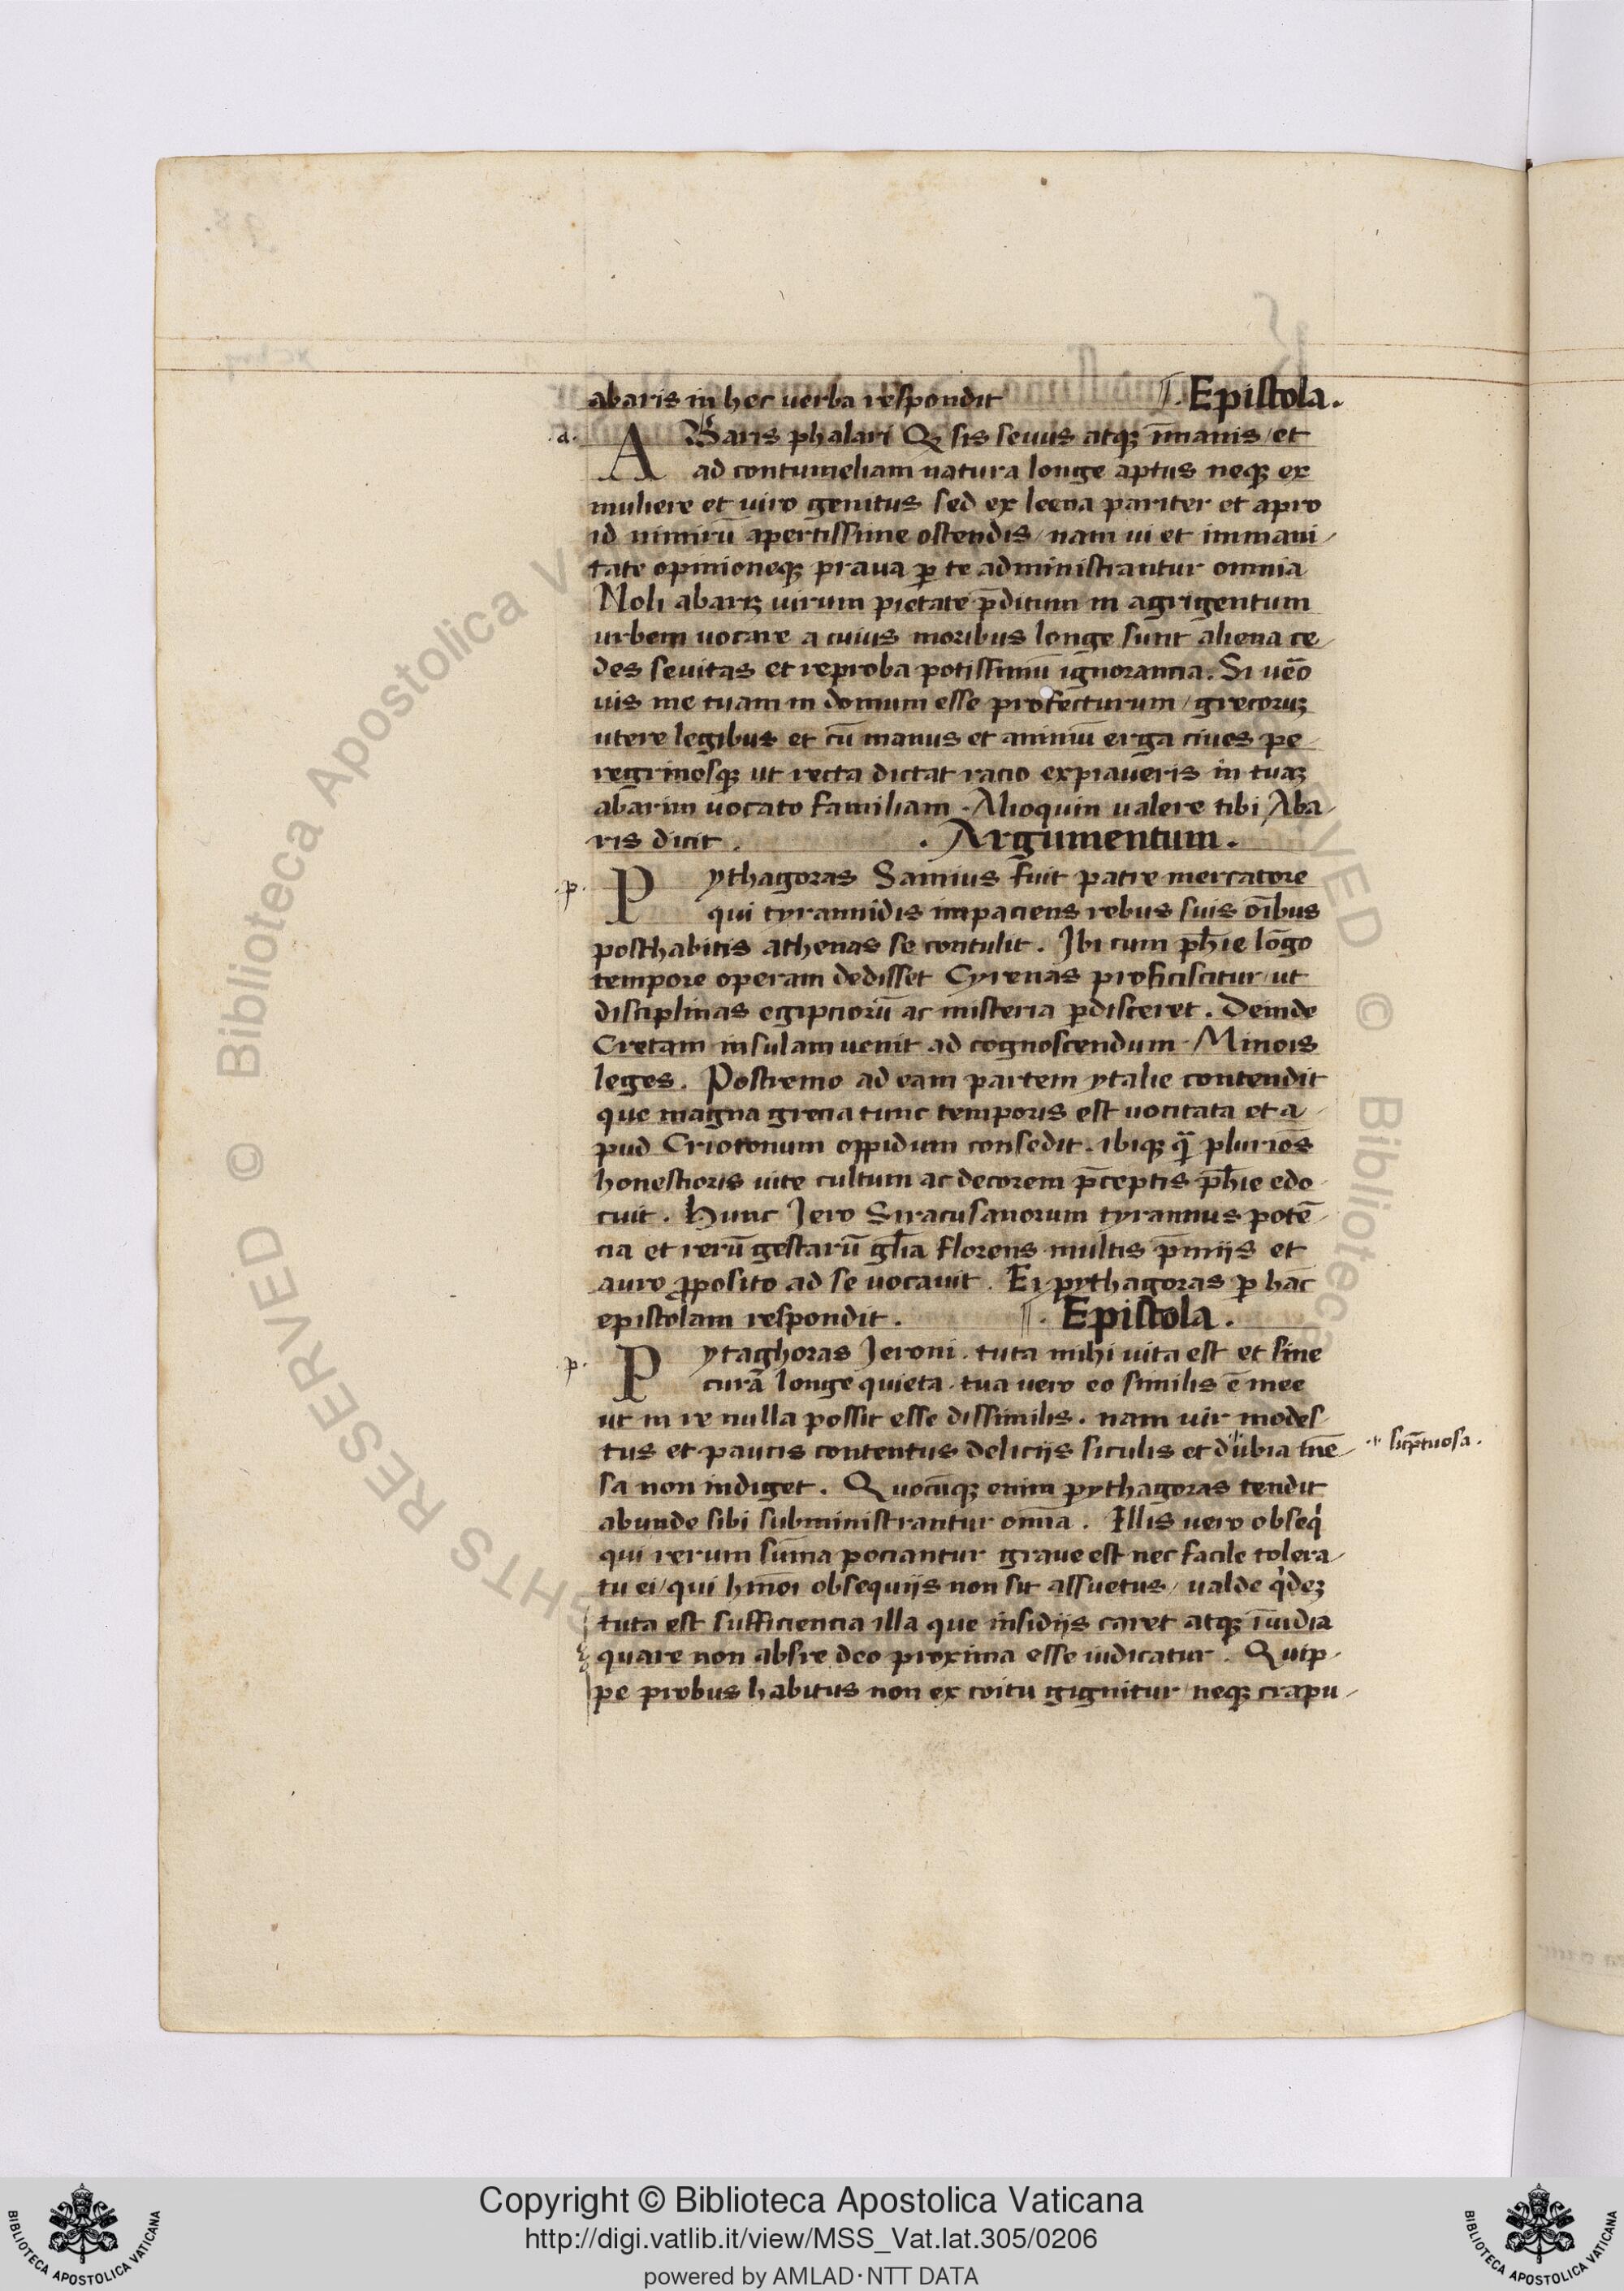 abaris in hec uerba respondit ¶. Epistola.
.a. ABaris phalari Q sis seuus atqꝫ īmanis / et
ad contumeliam natura longe aptus neqꝫ ex
muliere et uiro genitus sed ex leena pariter et apro
id nimirū apertissime ostendis / nam ui et immani /
tate opinioneqꝫ praua ꝑ te administrantur omnia
Noli abarꝫ uirum pietate p̄ditum in agrigentum
urbem uocare a cuius moribus longe sunt aliena ce /
des seuitas et reproba potissimū ignorancia. Si ueō
uis me tuam in domum esse profecturum / grecoruꝫ
utere legibus et cū manus et animū erga ciues pe /
regrinosqꝫ ut recta dictat racio expiaueris in tuaꝫ
abarim uocato familiam. Alioquin ualere tibi Aba /
ris dicit. . Argumentum.
.p. Pythagoras Samius fuit patre mercatore
qui tyrannidis impaciens rebus suis oībus
posthabitis athenas se contulit. Ibi cum ph̄ie lōgo
tempore operam dedisset Cyrenas proficiscitur / ut
disciplinas egipciorū ac misteria ꝑdisceret. Deinde
Cretam insulam uenit ad cognoscendum Minois
leges. Postremo ad eam partem ytalie contendit
que magna grecia tunc temporis est uocitata et a /
pud Criotonum oppidum consedit. ibiqꝫ q̄ plurioēs
honestioris uite cultum ac decorem p̄ceptis ph̄ie edo /
cuit. Hunc Jero Siracusanorum tyrannus potē /
cia et rerū gestarū gl̄ia florens multis p̄mijs et
auro ꝓposito ad se uocauit. Ei pythagoras ꝑ hāc
epistolam respondit. ¶. Epistola.
.p. Pytaghoras Jeroni. tuta mihi uita est et sine
curā longe quieta. tua uero eo similis ē mee
ut in re nulla possit esse dissimilis. nam uir modes /
tus et paucis contentus delicijs siculis et dubia mē /
sūptuosa.
sa non indiget. Quocūqꝫ enim pythagoras tendit
abunde sibi subministrantur omīa. Illis uero obseq'
qui rerum sūma pociantur graue est nec facile tolera /
tu ei / qui hm̄oi obsequijs non sit assuetus / ualde q'deꝫ
tuta est sufficiencia illa que insidijs caret atqꝫ īuidia
quare non absre deo proxima esse iudicatur. Quip /
pe probus habitus non ex coitu gignitur / neqꝫ crapu /
Copyright © Biblioteca Apostolica Vaticana
http://digi.vatlib.it/view/MSS_Vat.lat.305/0206
powered by AMLAD·NTT DATA